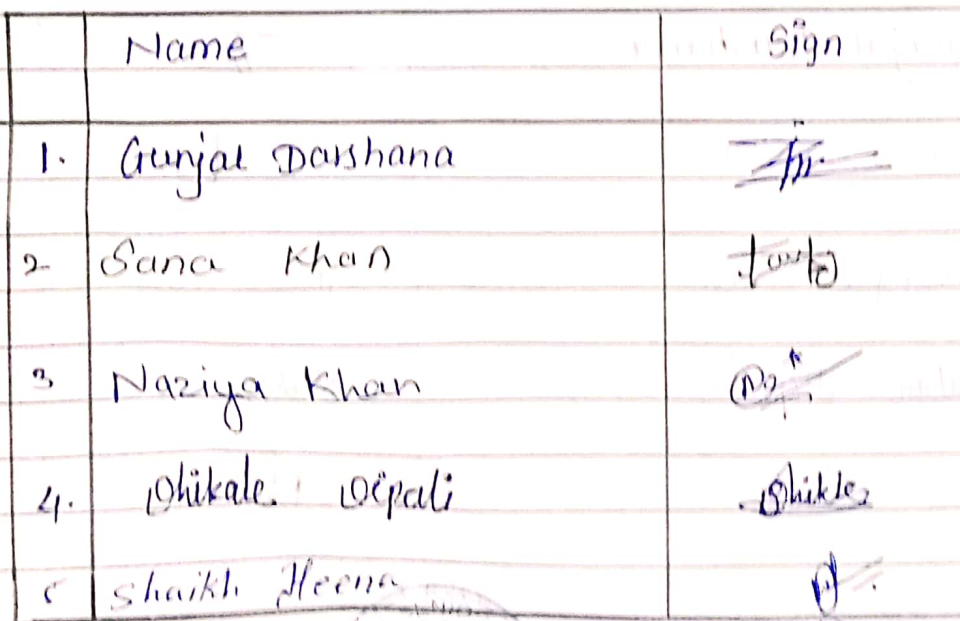 Name Sign
1. Gunjal Darshana
2 Sana Khan
3 Naziya Khan
4. Dhikale Dipali Dhikle
Shaikh Heena